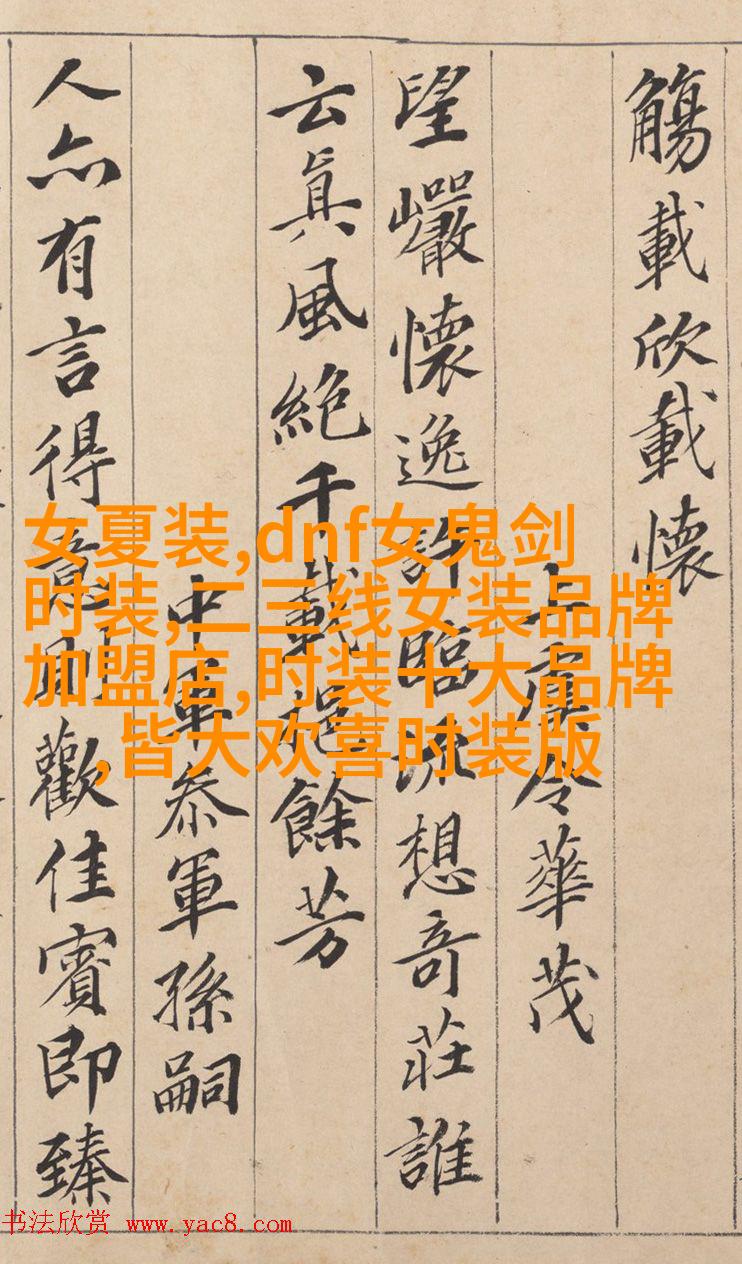 觴載欣載懷
上虞令華茂
望巖懷逸許臨流想奇莊誰
云眞風絕千載挹餘芳
中軍參軍孫嗣
人亦有言得意則歡佳賓即臻
女夏装,dnf女鬼剑
时装,二三线女装品牌
加盟店,时装十大品牌
,皆大欢喜时装版
书法欣赏 www.yac8.com